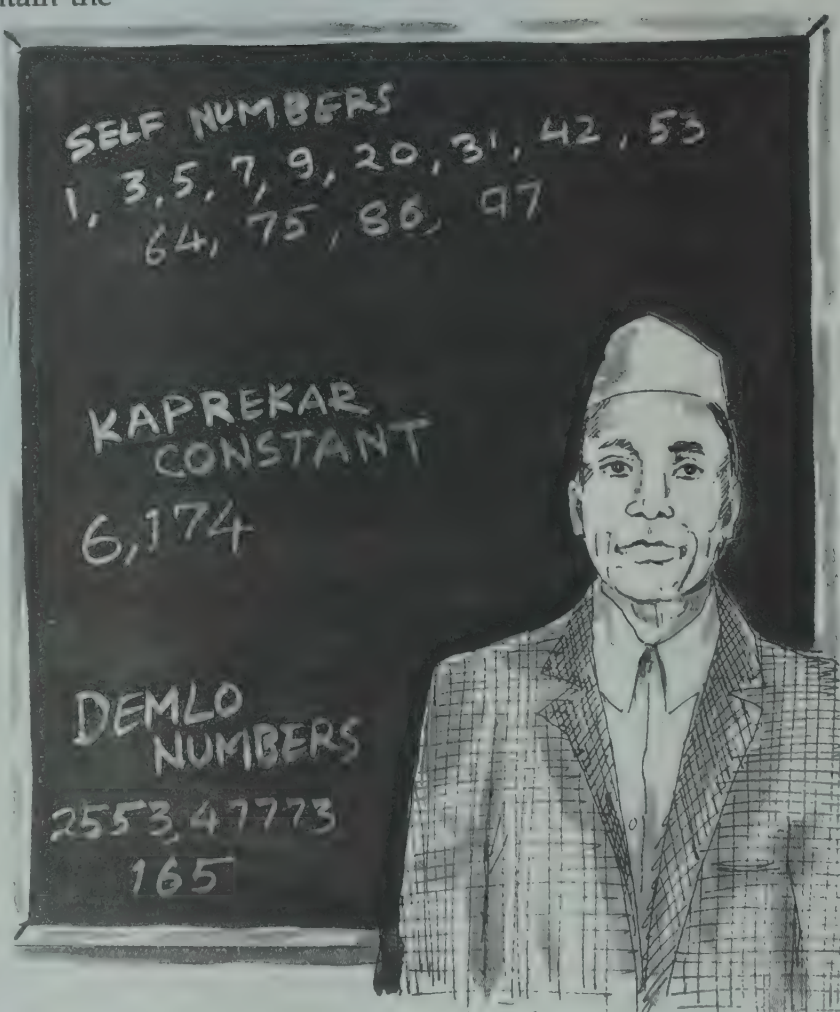 SELF NUMBERS
1, 3, 5, 7, 9, 20, 31, 42, 53
64, 75, 86, 97
KAPREKAR
CONSTANT
6,174
DEMLO
NUMBERS
2553, 47773
165